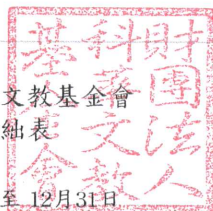 文教基金會
絀表
至 12月31日
財團法人
科
文教
基
會